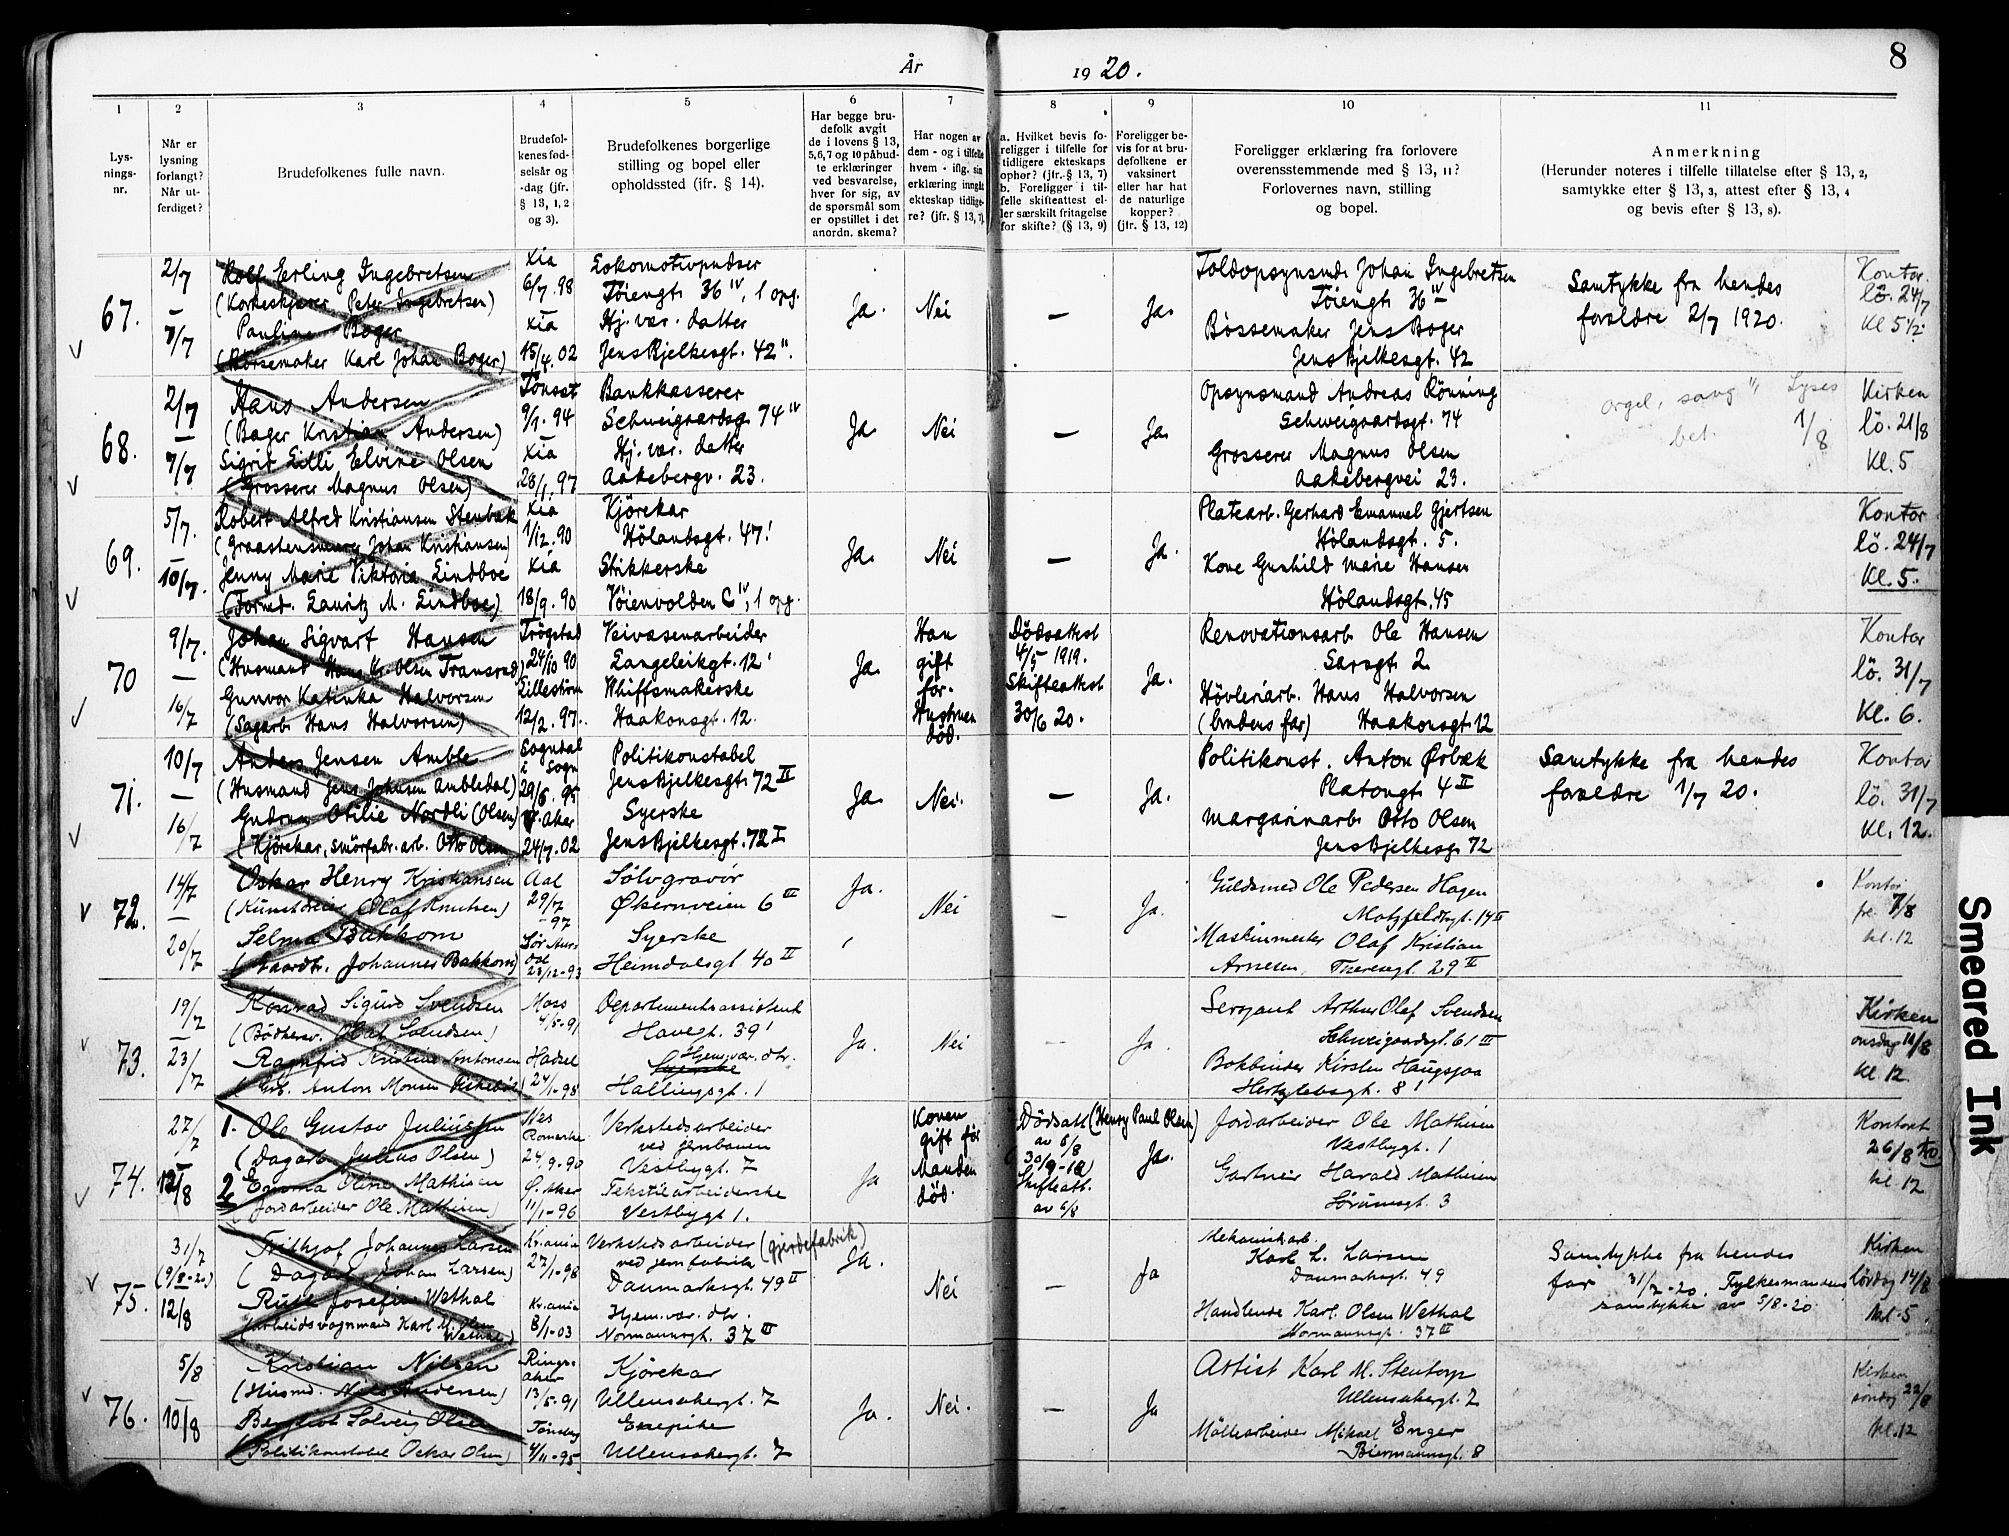 År 1920.
8
1 2 3 4 5 6 7 8 9 10 11
Lys-
nings-
nr.
Når er
lysning
forlangt?
Når ut-
ferdiget?
Brudefolkenes fulle navn.
Brudefol-
kenes fød-
selsår og
-dag (jfr.
§ 13, 1, 2
og 3).
Brudefolkenes borgerlige
stilling og bopel eller
opholdssted (ifr. § 14).
Har begge bru-
defolk avgit
de i lovens § 13,
5,6,7 og 10 påbud-
te erklæringer
ved besvarelse,
hver for sig, av
de spørsmål som
er opstillet i det
anordn. skema?
Har nogen av
dem - og i tilfelle
hvem - iflg. sin
erklæring inngåt
ekteskap tidlige-
re? (jfr. § 13, 7)
a. Hvilket bevis fo-
religger i tilfelle for
tidligere ekteskaps
ophør? (jfr. § 13, 7)
b. Foreligger i til-
felle skifteattest el-
ler særskilt fritagelse
for skifte? (§ 13, 9)
Foreligger be-
vis for at bru-
defolkene er
vaksinert
eller har hat
de naturlige
kopper?
(jfr. § 13, 12)
Foreligger erklæring fra forlovere
overensstemmende med § 13, 11?
Forlovernes navn, stilling
og bopel.
Anmerkning
(Herunder noteres i tilfelle tillatelse efter § 13, 2,
samtykke etter § 13, 3, attest efter § 13, 4
og bevis efter § 13, 8).
67.
2/7
—
7/7
Rolf Erling Ingebretsen
(Korkeskjærer Peter Ingebretsen)
Pauline Boger
(Börsemaker Karl Johan Boger)
Xia
6/7.98
Xia
15/4.02
Lokomotivpudser
Töiengt. 36 IV, 1 opg.
Hj. vær. datter
Jens Bjelkesgt. 42 II.
Ja.
Nei
—
Ja.
Toldopsynsmd. Johan Ingebretsen
Töiengt. 36 IV
Bössemaker Jens Boger
Jens Bjelkesgt. 42
Samtykke fra hendes
forældre 2/7 1920.
Kontor.
lö. 24/7
Kl 5½.
68.
2/7
—
7/7
Hans Andersen
(Bager Kristian Andersen)
Sigrid Lilli Elvine Olsen
(Grosserer Magnus Olsen)
9/1.94
Xia
28/1.97
Bankkasserer
Schweigaardsg 74 IV
Hj. vær. datter
Aakebergv. 23.
Ja
Nei
—
Ja.
Opsynsmand Andreas Rönning
Schweigaardsgt. 74
Grosserer Magnus Olsen
Aakebergvei 23.
orgel, sang "/, Lyses
bet. 1/8
Kirken
lö. 21/8
Kl. 5
69.
5/7.
—
10/7.
Robert Alfred Kristiansen Stenbak
(Graastensmurer Johan Kristiansen)
Jenny Marie Viktoria Lindboe
(Formd. Lauritz M. Lindboe)
Xia
1/12.90
Xia
18/9.90
Kjörekar
Hölandsgt. 47 I
Strikkerske
Vöienvolden C IV, 1 opg.
Ja.
Nei
—
Ja.
Platearb. Gerhard Emanuel Gjertsen
Hölandsgt. 5.
Kone Gunhild Marie Hansen
Hölandsgt. 45
Kontor
lö. 24/7
Kl. 5.
70
9/7.
—
16/7
Johan Sigvart Hansen
(Husmand Hans Kr. Olsen Transrud)
Gunvor Katinka Halvorsen
(Sagarb. Hans Halvorsen)
Trögstad
24/10 90
Lilleström
12/2.97.
Veivæsenarbeider
Langeleikgt. 12 I
Whiffsmakerske
Haakonsgt. 12.
Ja.
Han
gift
før.
Hustruen
död.
Dödsattest
4/5 1919.
Skifteattest
30/6 20.
Ja.
Renovationsarb. Ole Hansen
Sarsgt. 2
Hövleriarb. Hans Halvorsen
(brudens far) Haakonsgt. 12
Kontor
lö. 31/7
Kl. 6.
71.
10/7
—
16/7
Anders Jensen Amble
(Husmand Jens Johnsen Ambledal)
Gudrun Otilie Nordli (Olsen)
(Kjörekar, smörfabr. arb. Otto Olsen
Sogndal
i Sogn
29/6.95
V. Aker
24/7.02
Politikonstabel
Jens Bjelkesgt. 72 II
Syerske
Jens Bjelkesgt. 72 I
Ja.
Nei.
—
Ja.
Politikonst. Anton Örbæk
Platougt. 4 II
Margarinarb. Otto Olsen
Jens Bjelkesg. 72
Samtykke fra hendes
forældre 1/7 20.
Kontor
lö. 31/7
Kl. 12.
72.
14/7
—
20/7
Oskar Henry Kristiansen
(Kunstdreier Olaf Knutsen)
Selma Bakkom
(Gaardbr. Johannes Bakkom)
Aal
29/7
-97
Sör Aur-
dal
23/12-93
Sölvgravör
Økernveien 6 IV
Syerske
Heimdalsgt 40 II
Ja.
Nei
—
Ja.
Guldsmed Ole Pedersen Hagen
Motzfeldtsgt. 14 II
Maskinmester Olaf Kristian
Arnesen, Theresesgt. 29 II
Kontor
fre. 7/8
kl. 12
73.
19/7
—
23/7
Konrad Sigurd Svendsen
(Bödkersv. Olaf Svendsen)
Ragnfrid Kristine Antonsen
(Arb. Anton Monsen
Moss
4/5-91
Hadsel
24/1-98
Departementsassistent
Havegt. 39 I
Hjem. vær. dtr.
Syerske
Hallingsgt. 1
Ja.
Nei
—
Ja.
Sersjant Arthur Olaf Svendsen
Schweigaardsgt. 61 III
Bokbinder Kirsten Haugsjaa
Hertzlebsgt. 8 I
Kirken
onsdag 11/8
Kl. 12.
74.
27/7
12/8
1. Ole Gustav Juliussen
(Dagarb. Julius Olsen)
2. Emma Oline Mathisen
(Jordarbeider Ole Mathisen)
Nes
Romerike
24/9-90
Ö. Aker
11/1-96
Verkstedsarbeider
ved jernbanen
Vestbygt. 7
Tekstilarbeiderske
Vestbygt 1.
Ja
Konen
gift før
Manden
død.
Dödsatt (Henry Paul Olsen)
av 6/8
30/9-18)
Skifteatt.
av 6/8
Ja.
Jordarbeider Ole Mathisen
Vestbygt. 1
Gartner Harald Mathisen
Sörumsgt. 3
Kontoret
26/8
kl. 12
75.
31/7
(9/8-20)
12/8
Trithjof Johannes Larsen
(Dagarb. Johan Larsen)
Ruth Josefine Wethal
(arbeidsvognmand Karl M. Olsen
Wethal)
Kr.ania
27/1-98
Kr.ania
8/1-03
Verkstedsarbeider (gjerdefabrik)
ved jernfabrik
Danmarksgt. 49 II
Hjem. vær. dtr.
Normannsgt. 37 III
Ja.
Nei
—
Ja
Mekanisk arb.
Karl L. Larsen
Danmarksgt. 49
Handlende Karl Olsen Wethal
Normannsgt. 37 III
Samtykke fra hendes
far 31/7-20. Fylkesmandens
samtykke av 5/8-20
Kirken
lördag 14/8
kl. 5
76.
5/8
10/8
Kristian Nilsen
(Husmd. Nils Andersen)
Bergliot Solveig Olsen
(Politikonstabel Oskar Olsen)
Rings-
aker
13/5-91
Tönsberg
4/11-95
Kjörekar
Ullensakergt. 7
Ullensakergt. 7
Ja.
Nei.
—
Ja
Artist Karl M. Stentorp
Ullensakergt. 7
Möllearbeider Mikael Enger
Biermannsgt. 8
Kirken
söndag 22/8
kl. 12
Smeared Ink